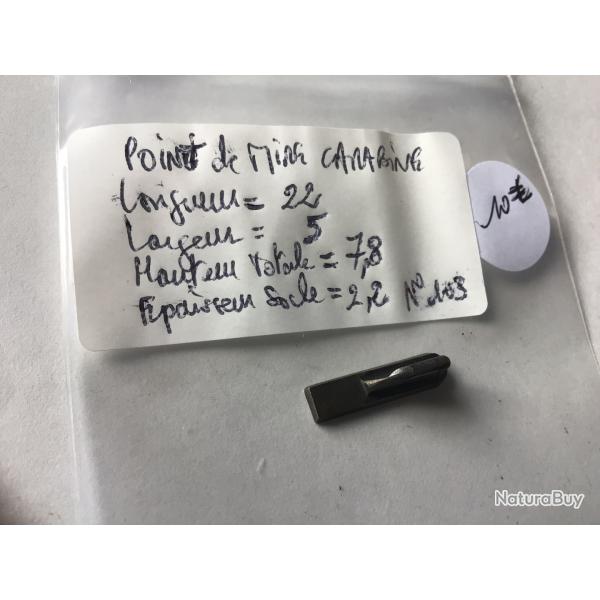 POINT de MIRE CARABINE
Longueur = 22
Largeur = 5
Hauteur totale = 7,8
Epaisseur Socle = 2,2 N° 103
10 €
NaturaBuy